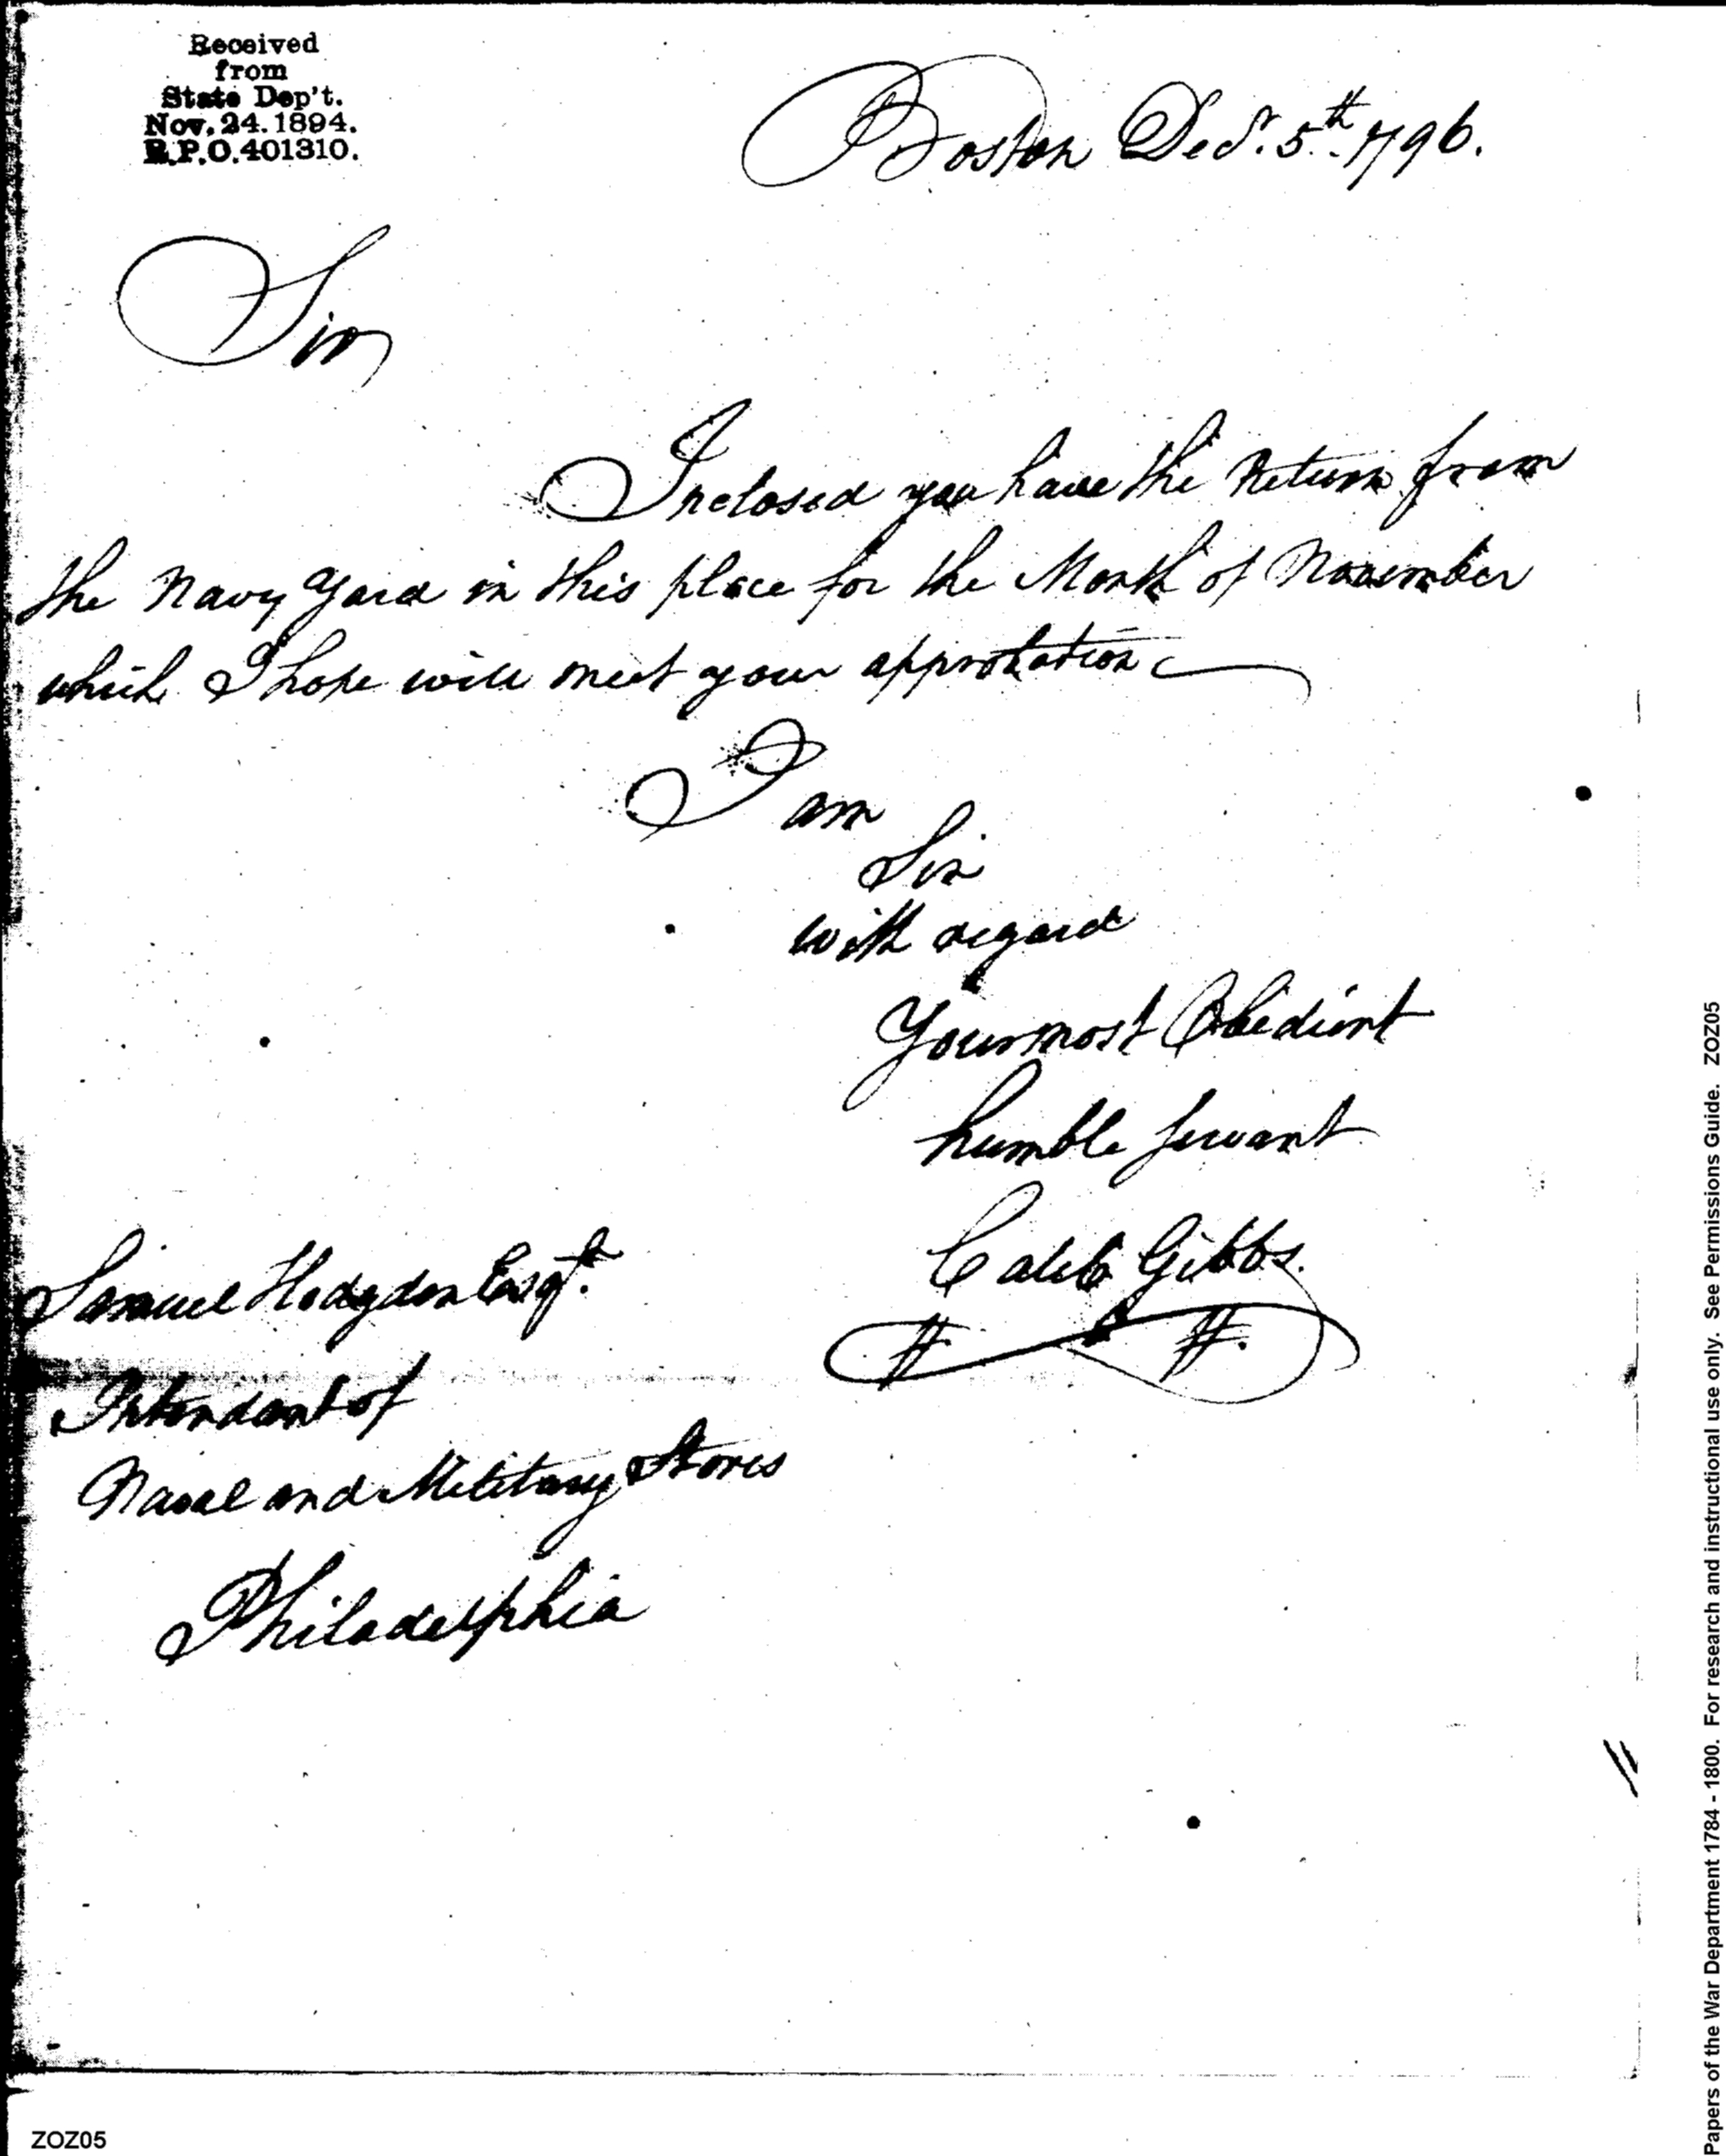 Received
from
State Dep't.
Nov. 24. 1894.
R.P.O. 401310.
Boston Decr. 5th. 1796.
Sir
Inclosed you have the Return from
the Navy Yard in this place for the Month of November
which I hope will meet your approbation
I am
Sir
with regard
Your most Obedient
humble servant
Caleb Gibbs.
Samuel Hodgdon Esqr.
Intendant of
Naval and Military Stores
Philadelphia
ZOZ05
Papers of the War Department 1784 - 1800. For research and instructional use only. See Permissions Guide. ZOZ05